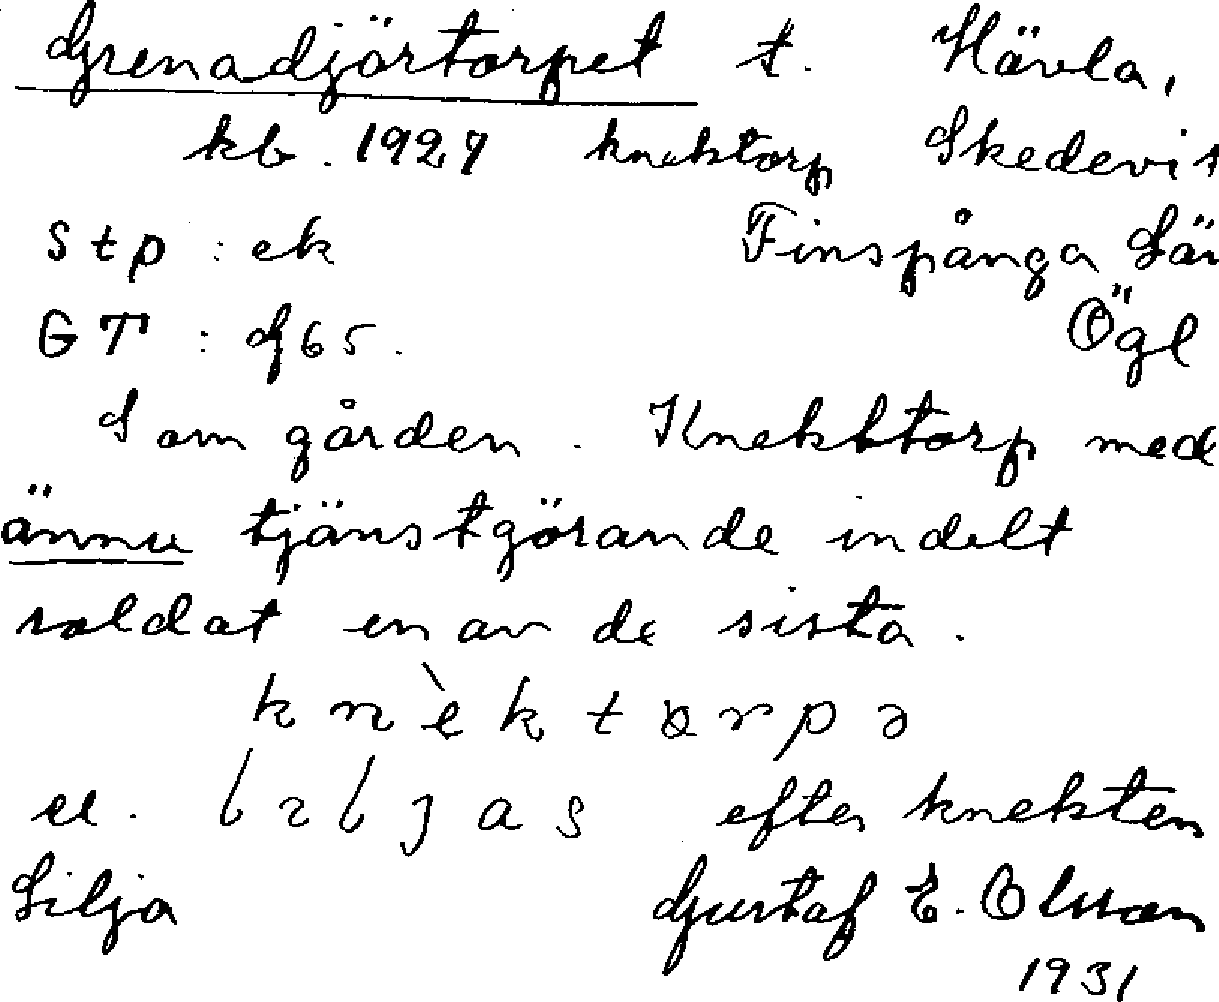 Grenadjörtorpet t. Hävla,
kb. 1927 knektorp Skedevi s
Stp : ek Finspånga Län
GT : G65. Ögl
Som gården. Knekttorp med
ännu tjänstgörande indelt
soldat en av de sista.
knὲktɷrpə
el. efter knekten
Lilja Gustaf E. Olsson
1931